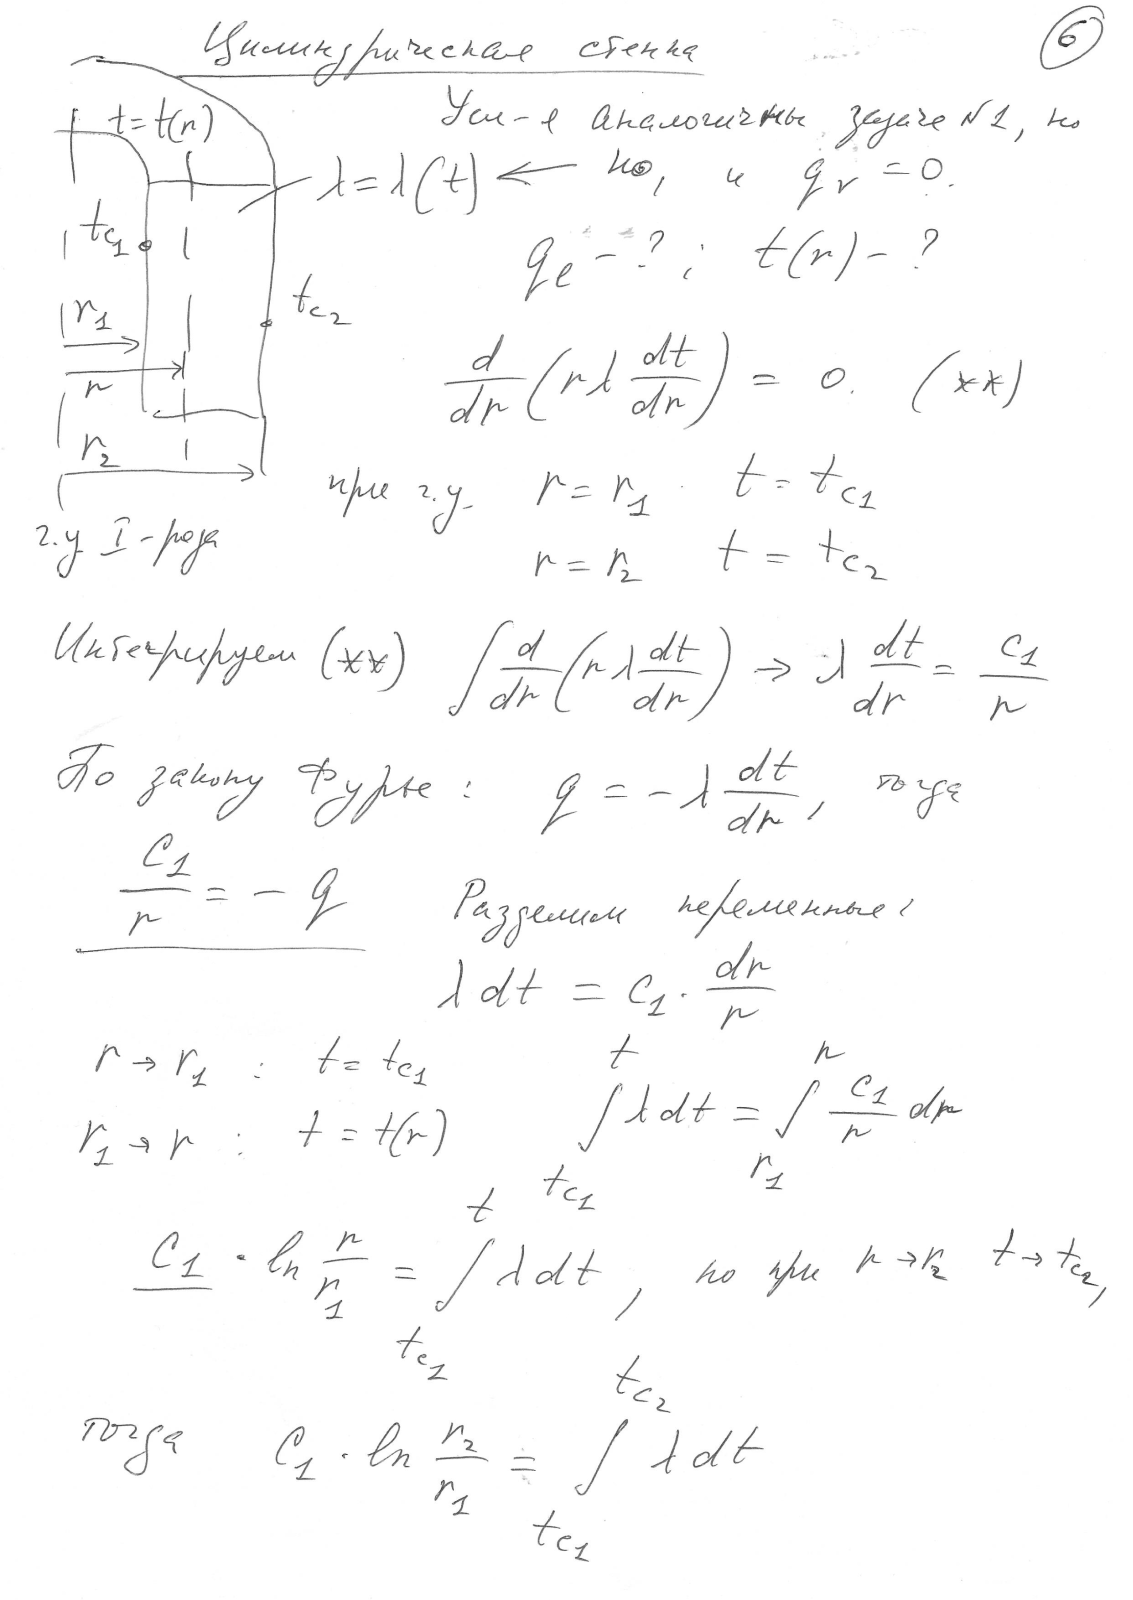 Цилиндрическая стенка
6
Усл-я аналогичны задаче №1, но
t = t(r)
λ = λ(t) ← но, и q_v = 0.
t_c1
q_e - ? ; t(r) - ?
t_c2
r_1
d/dr (rλ dt/dr) = 0. (**)
r
r_2
при г.у. r = r_1 t = t_c1
г.у I-рода
r = r_2 t = t_c2
Интегрируем (**) ∫ d/dr (rλ dt/dr) → λ dt/dr = c_1/r
По закону Фурье : q = -λ dt/dr, тогда
c_1/r = - q Разделим переменные:
λ dt = c_1 · dr/r
r → r_1 : t = t_c1
∫_{t_c1}^{t} λ dt = ∫_{r_1}^{r} c_1/r dr
r_1 → r : t = t(r)
c_1 · ln r/r_1 = ∫_{t_c1}^{t} λ dt, но при r → r_2 t → t_c2,
тогда c_1 · ln r_2/r_1 = ∫_{t_c1}^{t_c2} λ dt